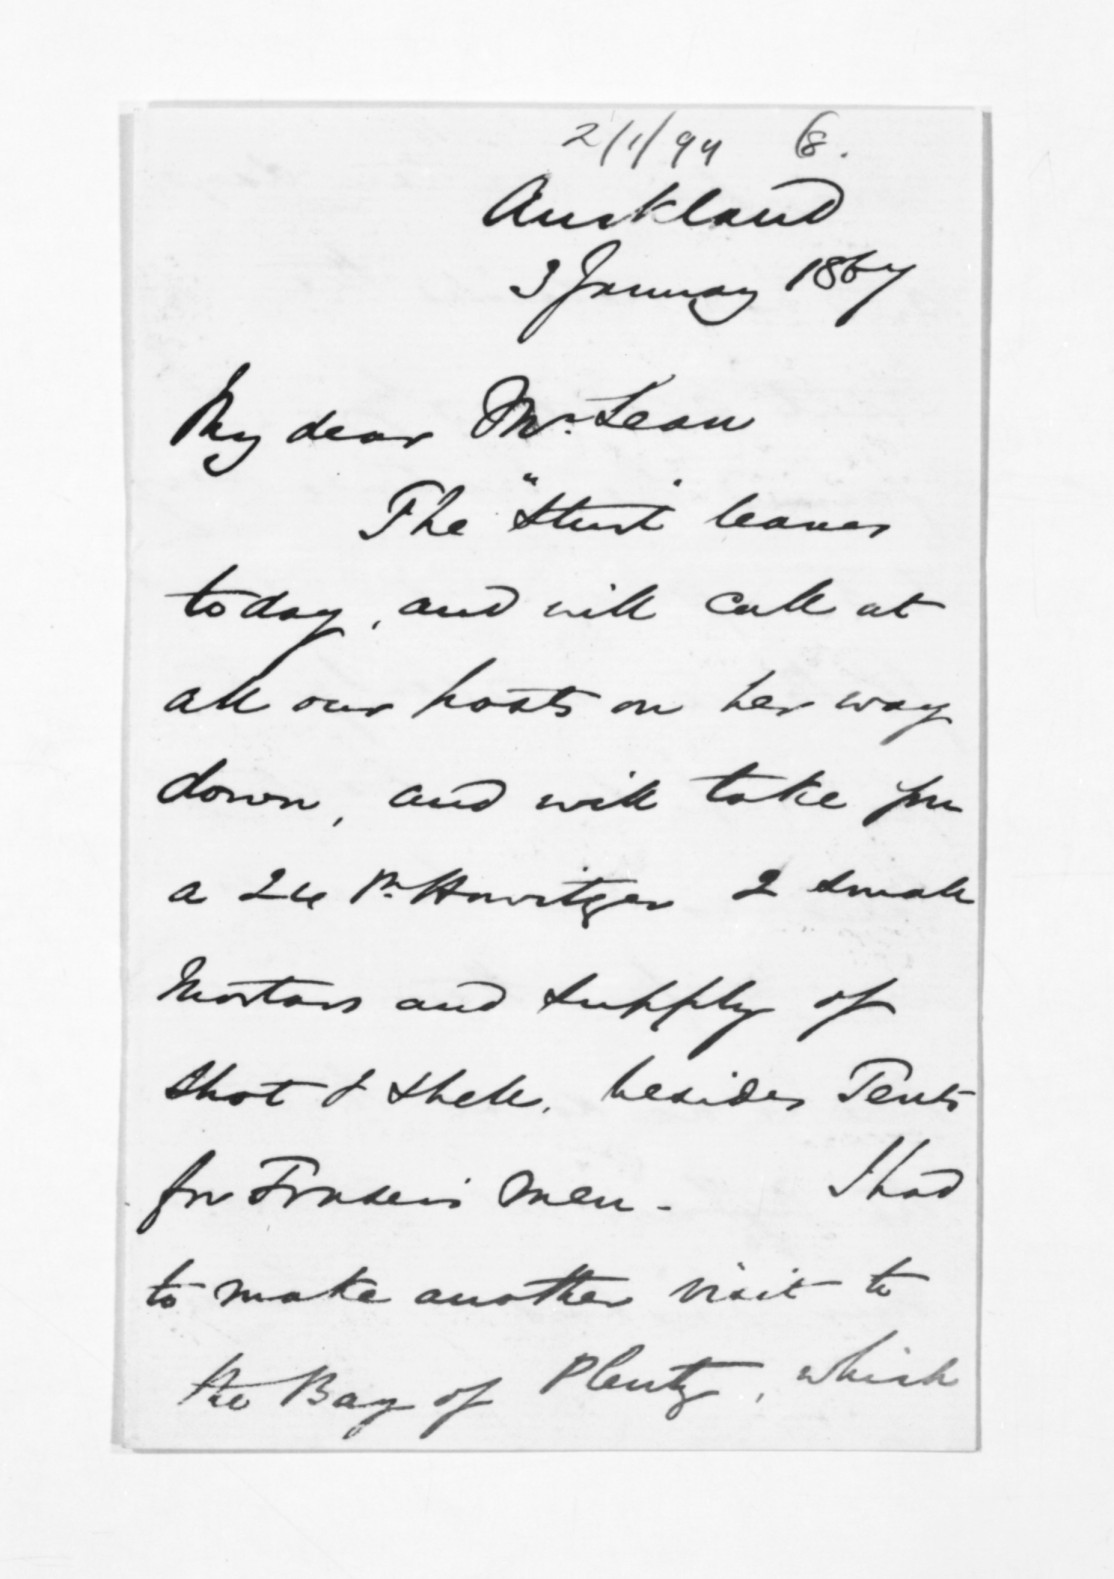 2/1/94 68.
Auckland
3 January 1867
My dear Mr. Lean
The "Sturt" leaves
today, and will call at
all our posts on her way
down, and will take you
a 24 Pr. Howitzer 2 small
Mortars and supply of
shot & shell. besides Tents
for Fraser's men. - I had
to make another visit to
the Bay of Plenty, which